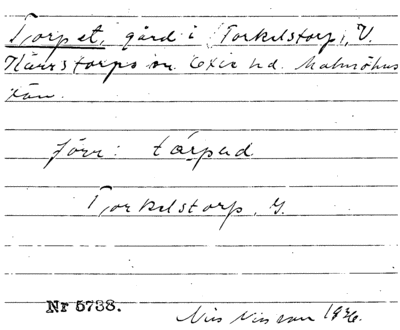 Torpet, gård i (Torkelstorp), V.
Kärrstorps sn. Oxie hd. Malmöhus
län.
förr: tårpad
Torkelstorp, G.
Nr 5738.
Nils Nilsson 1936.